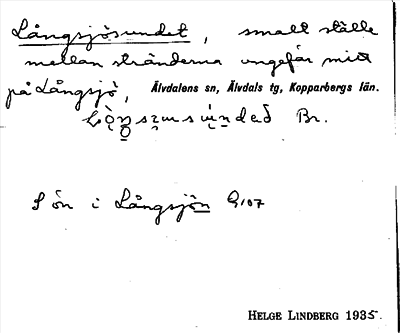 Långsjösundet, smalt ställe
mellan stränderna ungefär mitt
på Långsjö, Älvdalens sn, Älvdals tg, Kopparbergs län.
Br.
S ön i Långsjön G107
HELGE LINDBERG 1935.